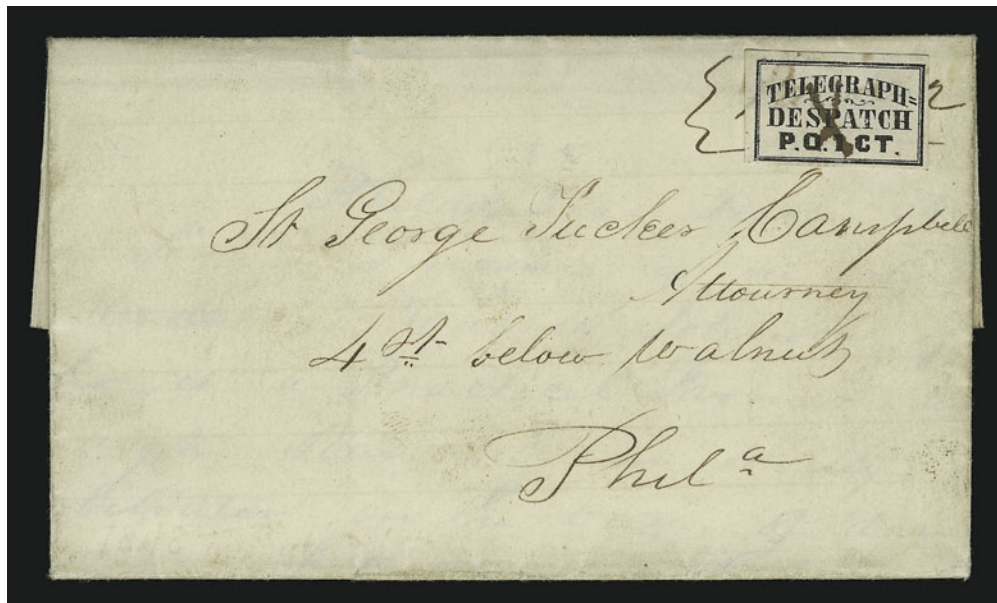 TELEGRAPH=
DESPATCH
P.O. 1 CT.
St George Tucker Campbell
Attourney
4 st below Walnut
Phil a